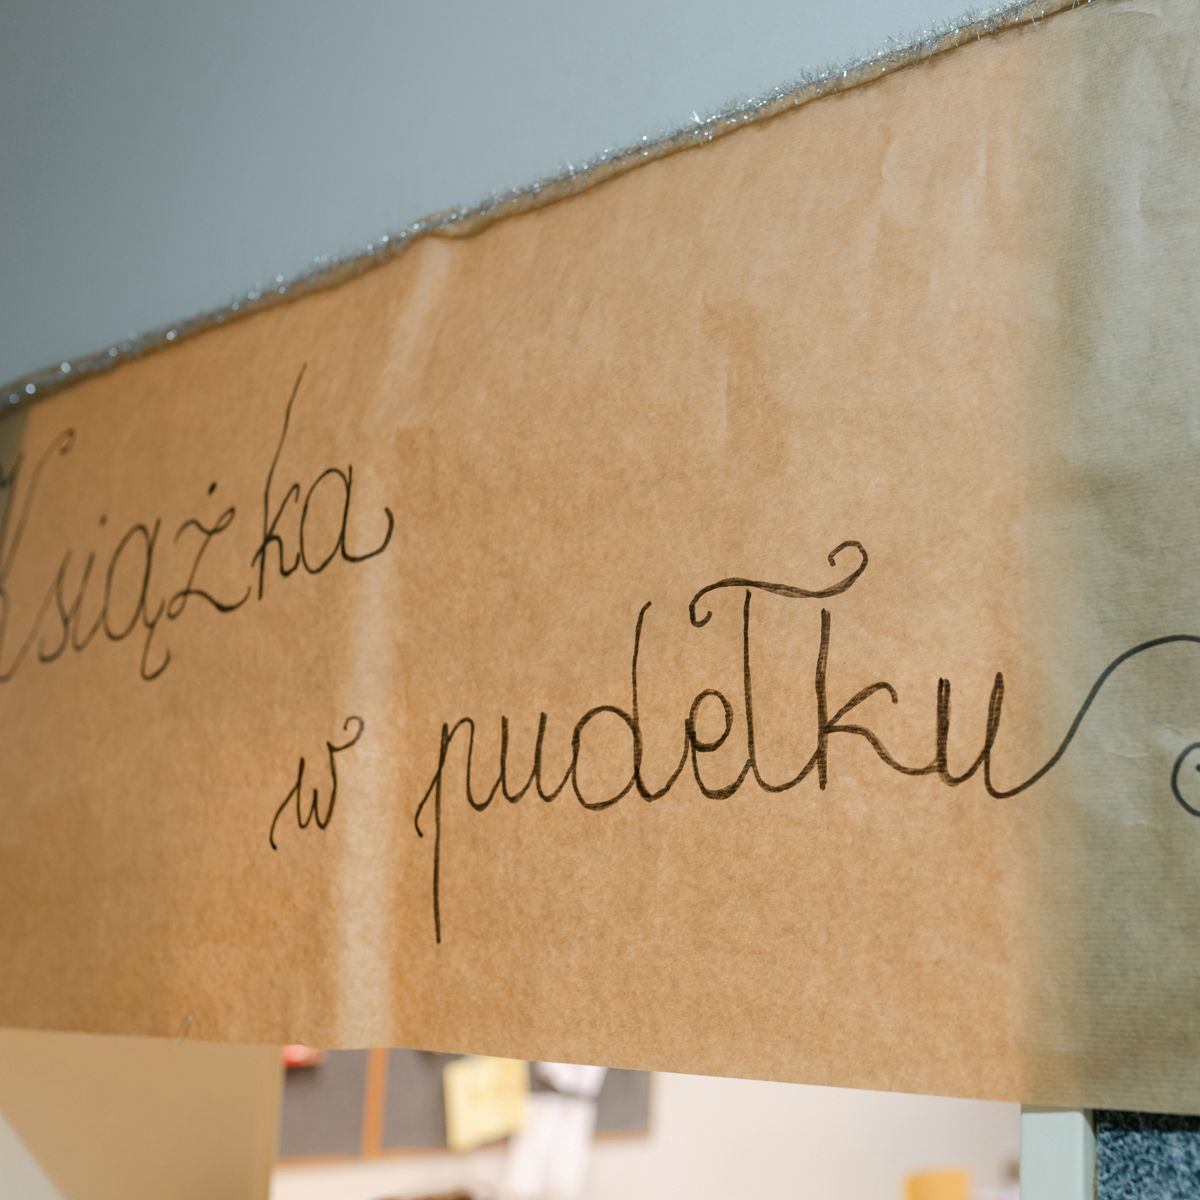 Książka
w pudełku